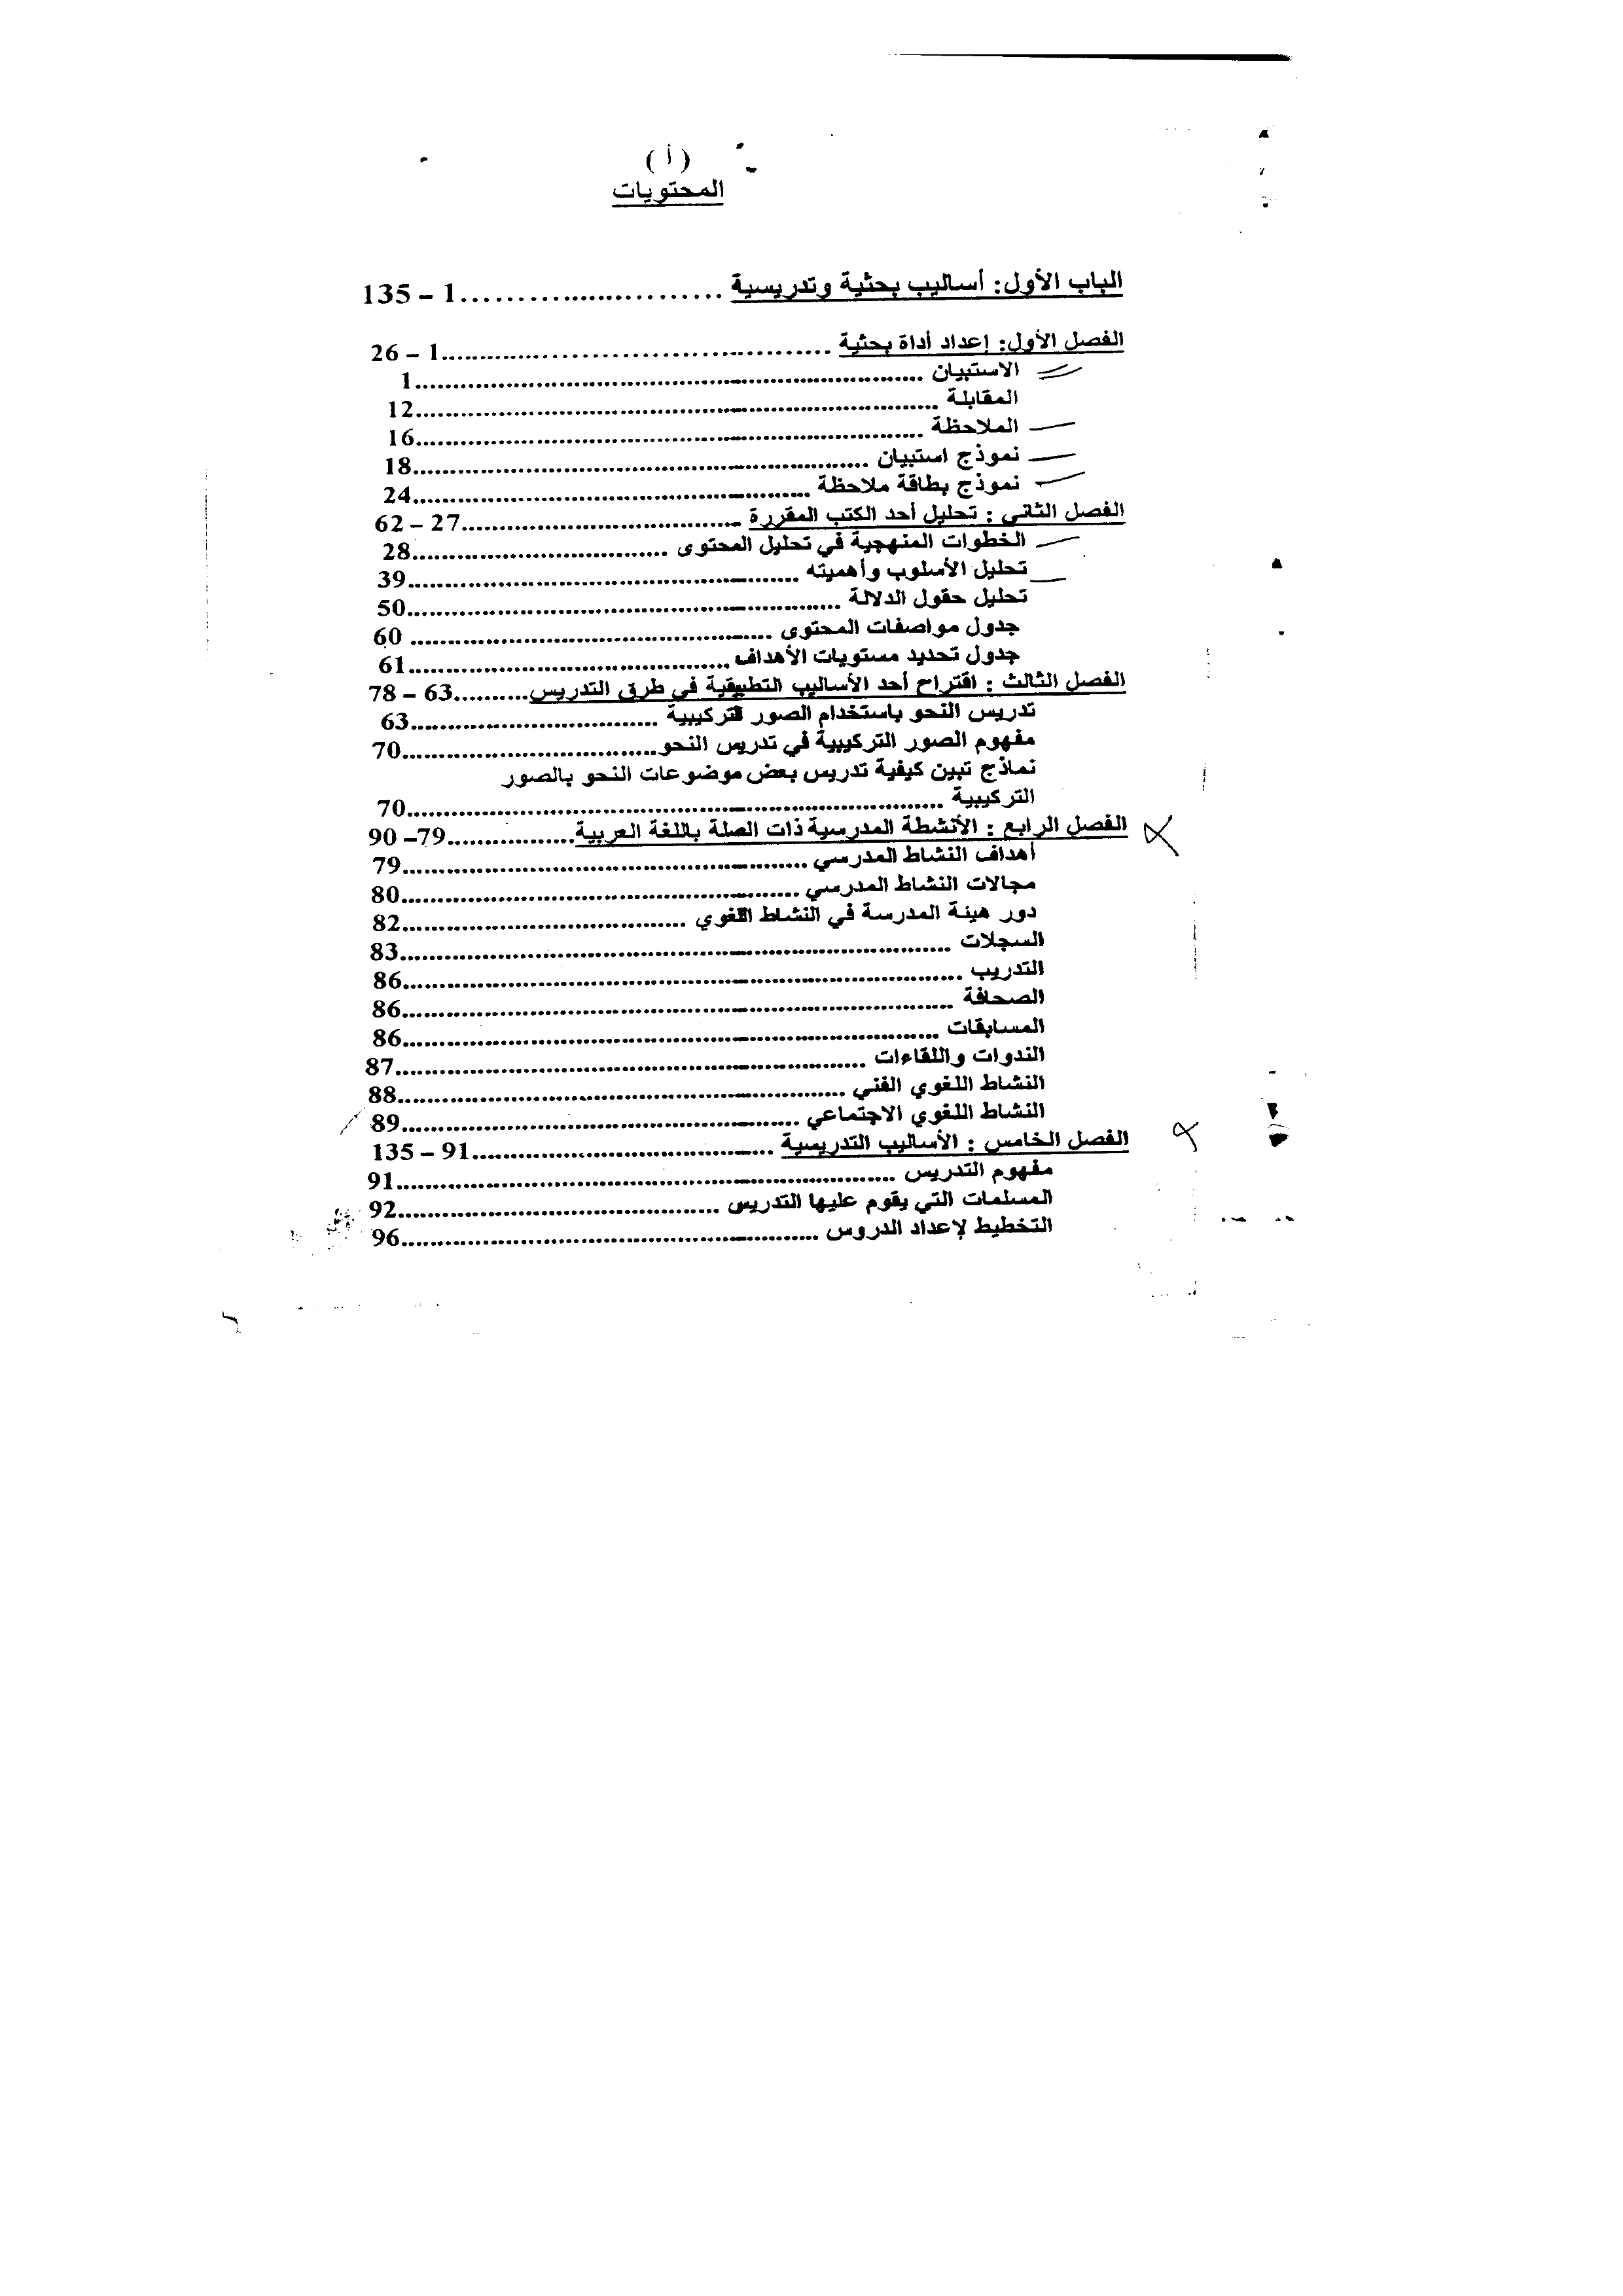 ( أ )
المحتويات
الباب الأول: أساليب بحثية وتدريسية ........................ 1 – 135
الفصل الأول: إعداد أداة بحثية ........................ 1 – 26
الاستبيان ........................ 1
المقابلة ........................ 12
الملاحظة ........................ 16
نموذج استبيان ........................ 18
نموذج بطاقة ملاحظة ........................ 24
الفصل الثاني : تحليل أحد الكتب المقررة ........................ 27 – 62
الخطوات المنهجية في تحليل المحتوى ........................ 28
تحليل الأسلوب وأهميته ........................ 39
تحليل حقول الدلالة ........................ 50
جدول مواصفات المحتوى ........................ 60
جدول تحديد مستويات الأهداف ........................ 61
الفصل الثالث : اقتراح أحد الأساليب التطبيقية في طرق التدريس .......... 63 – 78
تدريس النحو باستخدام الصور التركيبية ........................ 63
مفهوم الصور التركيبية في تدريس النحو ........................ 70
نماذج تبين كيفية تدريس بعض موضوعات النحو بالصور
التركيبية ........................ 70
الفصل الرابع : الأنشطة المدرسية ذات الصلة باللغة العربية ................. 79– 90
أهداف النشاط المدرسي ........................ 79
مجالات النشاط المدرسي ........................ 80
دور هيئة المدرسة في النشاط اللغوي ........................ 82
السجلات ........................ 83
التدريب ........................ 86
الصحافة ........................ 86
المسابقات ........................ 86
الندوات واللقاءات ........................ 87
النشاط اللغوي الفني ........................ 88
النشاط اللغوي الاجتماعي ........................ 89
الفصل الخامس : الأساليب التدريسية ........................ 91 – 135
مفهوم التدريس ........................ 91
المسلمات التي يقوم عليها التدريس ........................ 92
التخطيط لإعداد الدروس ........................ 96